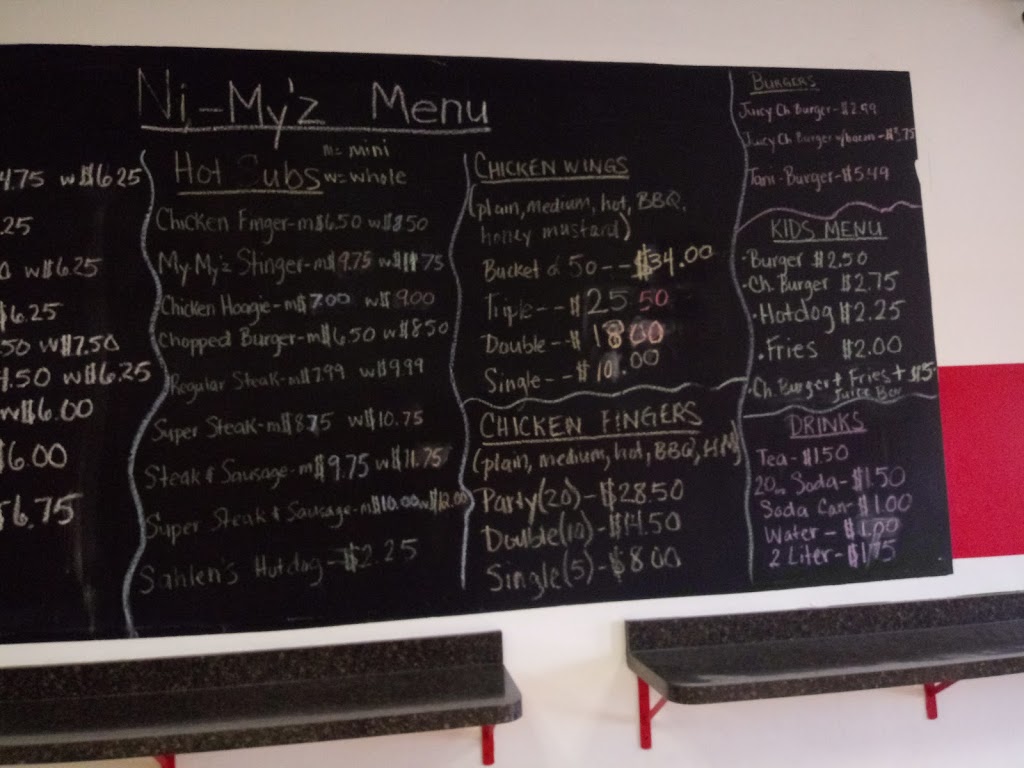 Ni-My'z Menu
4.75 w$6.25
.25
w$6.25
$6.25
.50 w$7.50
4.50 w$6.25
w$6.00
$6.00
$6.75
Hot Subs
m= mini
w= whole
Chicken Finger-m$6.50 w$8.50
My-My'z Stinger-m$9.75 w$11.75
Chicken Hoagie-m$7.00 w$9.00
Chopped Burger-m$6.50 w$8.50
Regular Steak-m$7.99 w$9.99
Super Steak-m$8.75 w$10.75
Steak & Sausage-m$9.75 w$11.75
Super Steak & Sausage-m$10.00 w$12.00
Sahlen's Hotdog-$2.25
CHICKEN WINGS
(plain, medium, hot, BBQ,
honey mustard)
Bucket of 50--$34.00
Triple--$25.50
Double--$18.00
Single--$10.00
CHICKEN FINGERS
(plain, medium, hot, BBQ, HM)
Party(20)-$28.50
Double(10)-$14.50
Single(5)-$8.00
BURGERS
Juicy Ch.Burger-$2.99
Juicy Ch.Burger w/bacon-$3.75
Tani-Burger-$5.49
KIDS MENU
·Burger $2.50
·Ch.Burger $2.75
·Hotdog $2.25
·Fries $2.00
·Ch.Burger + Fries + $5-
Juice Box
DRINKS
Tea-$1.50
20oz Soda-$1.50
Soda Can-$1.00
Water-$1.00
2 Liter-$1.75